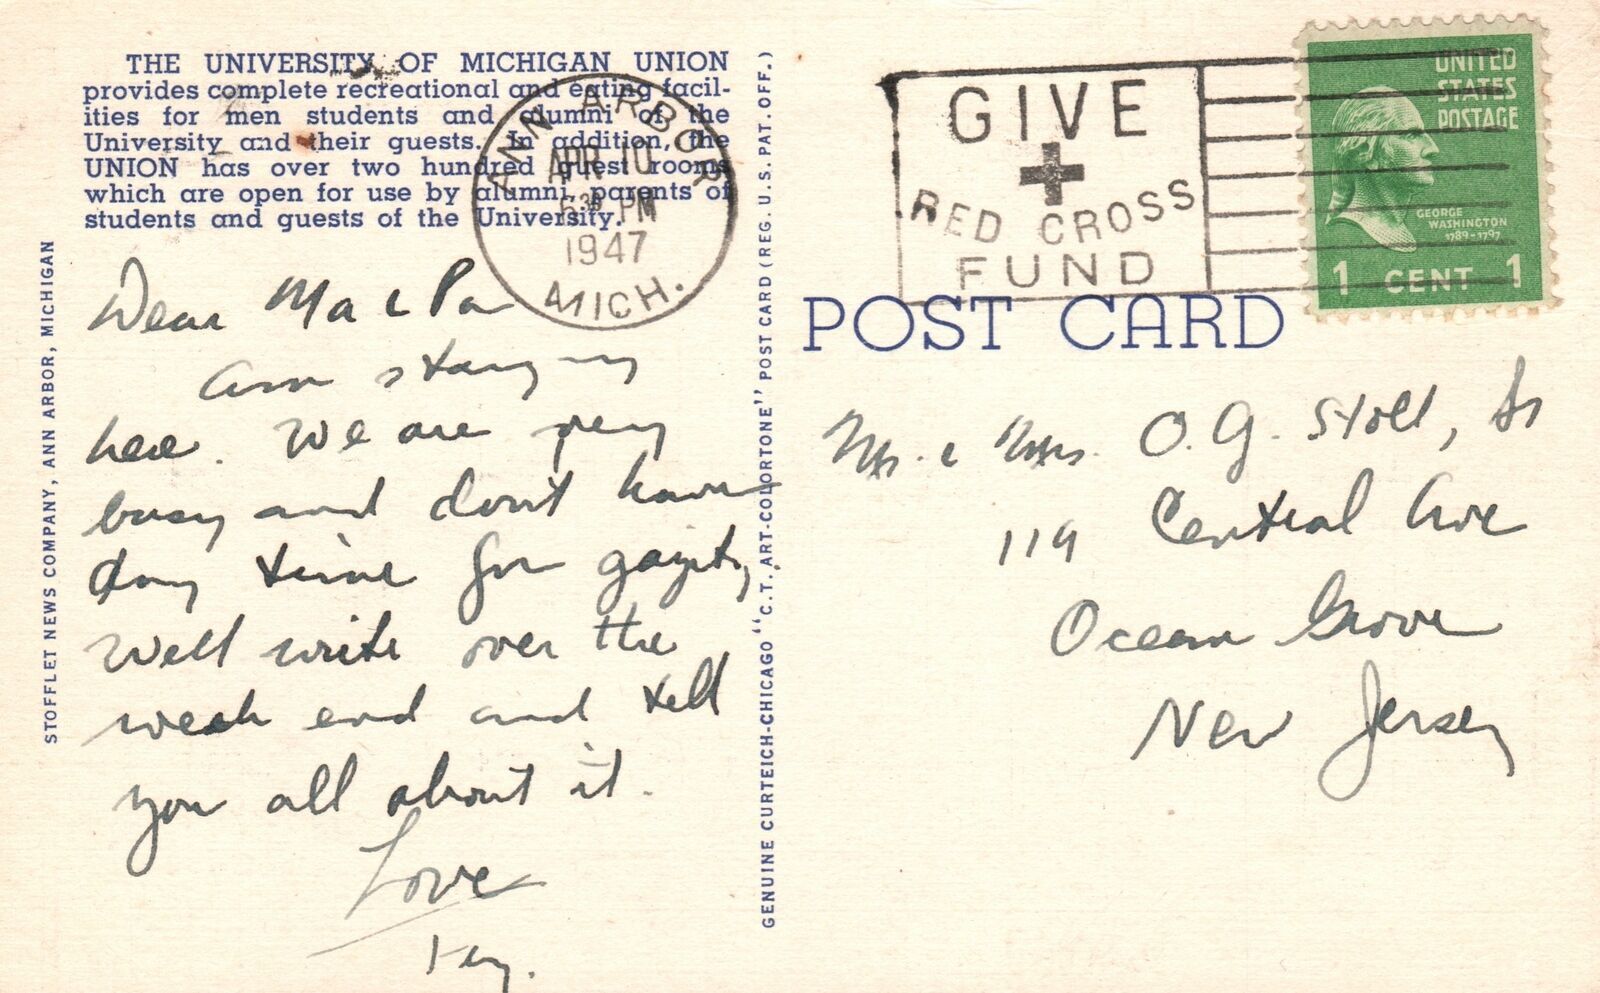 THE UNIVERSITY OF MICHIGAN UNION
provides complete recreational and eating facil-
ities for men students and alumni of the
University and their guests. In addition, the
UNION has over two hundred guest rooms
which are open for use by alumni, parents of
students and guests of the University.
STOFFLET NEWS COMPANY, ANN ARBOR, MICHIGAN
Dear Ma & Pa
am staying
here. We are very
busy and don't have
day time for gayety,
Well write over the
week end and tell
you all about it.
Love
GENUINE CURTEICH-CHICAGO "C.T. ART-COLORTONE" POST CARD (REG. U.S. PAT. OFF.)
ANN ARBOR
APR 10
6 30 PM
1947
MICH.
GIVE
RED CROSS
FUND
UNITED
STATES
POSTAGE
GEORGE
WASHINGTON
1789-1797
1 CENT 1
POST CARD
Mr. & Mrs. O.G. Stoll, Sr
119 Central Ave
Ocean Grove
New Jersey